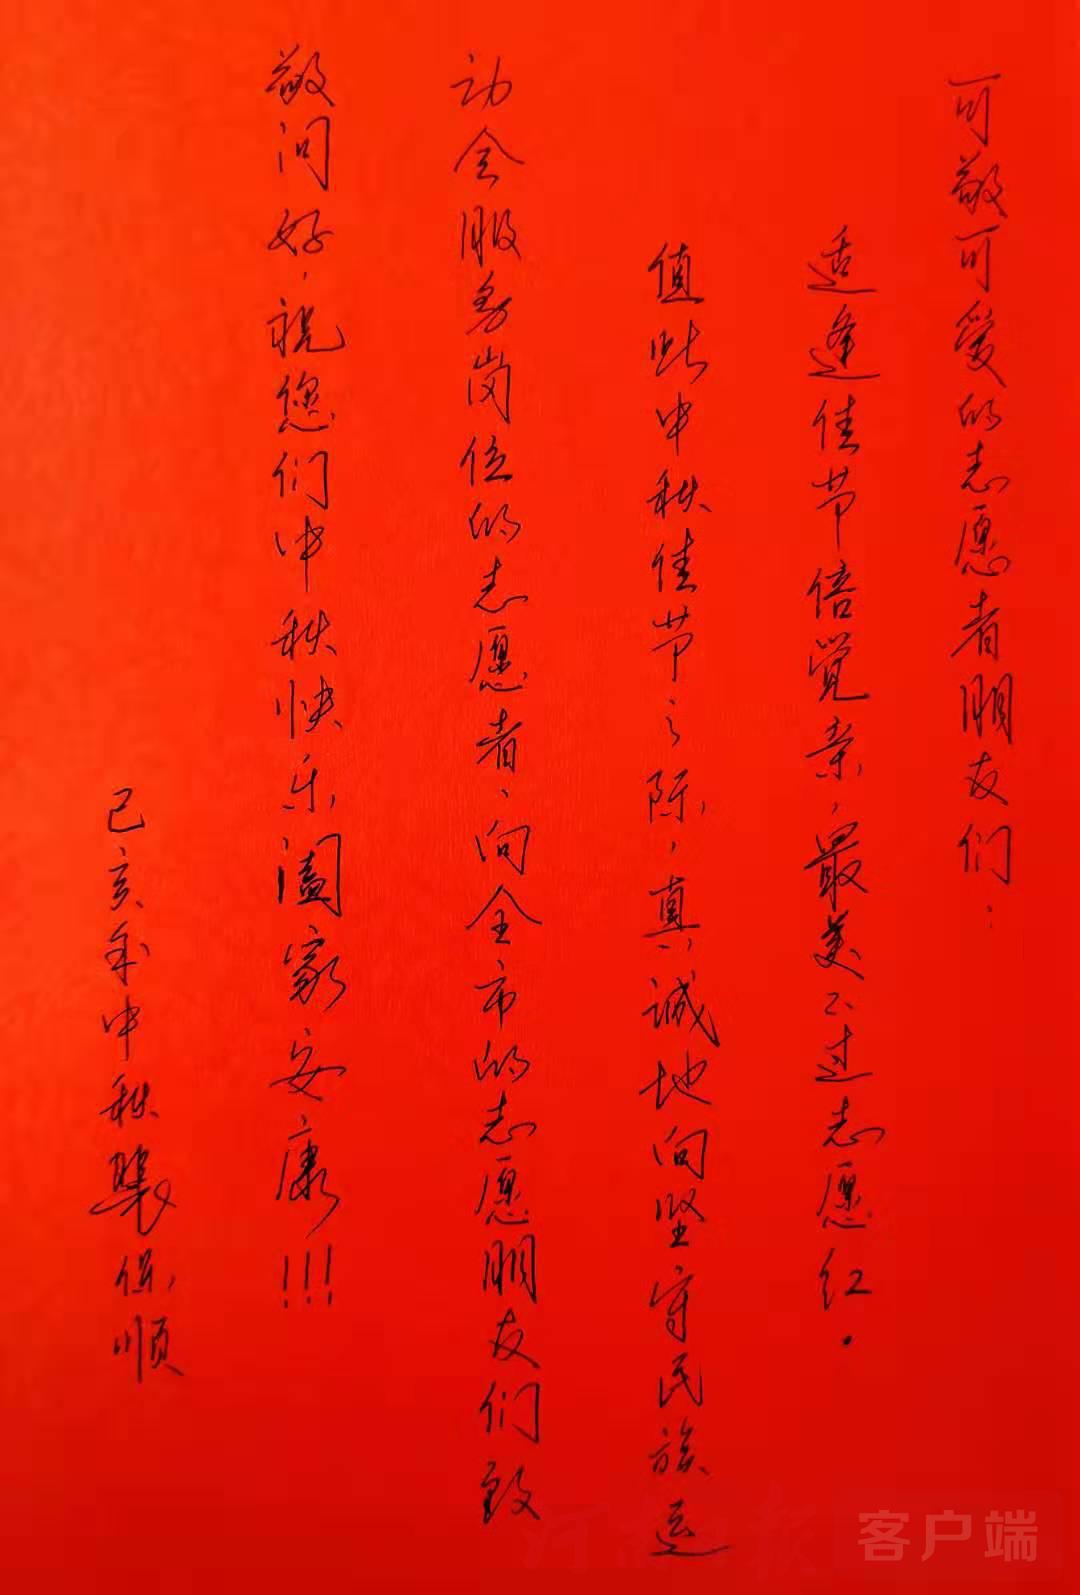 可敬可爱的志愿者朋友们：
适逢佳节倍覺亲，最美不过志愿红。
值此中秋佳节之际，真诚地向坚守民族运
动会服务岗位的志愿者、向全市的志愿朋友们致
敬问好，祝您们中秋快乐阖家安康!!!
己亥年中秋 保顺
河南日报 客户端